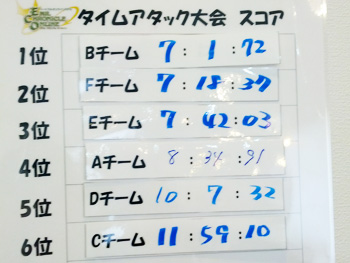 EMIL CHRONICLE ONLINE
タイムアタック大会 スコア
1位 Bチーム 7:1:72
2位 Fチーム 7:18:37
3位 Eチーム 7:42:03
4位 Aチーム 8:34:91
5位 Dチーム 10:7:32
6位 Cチーム 11:59:10